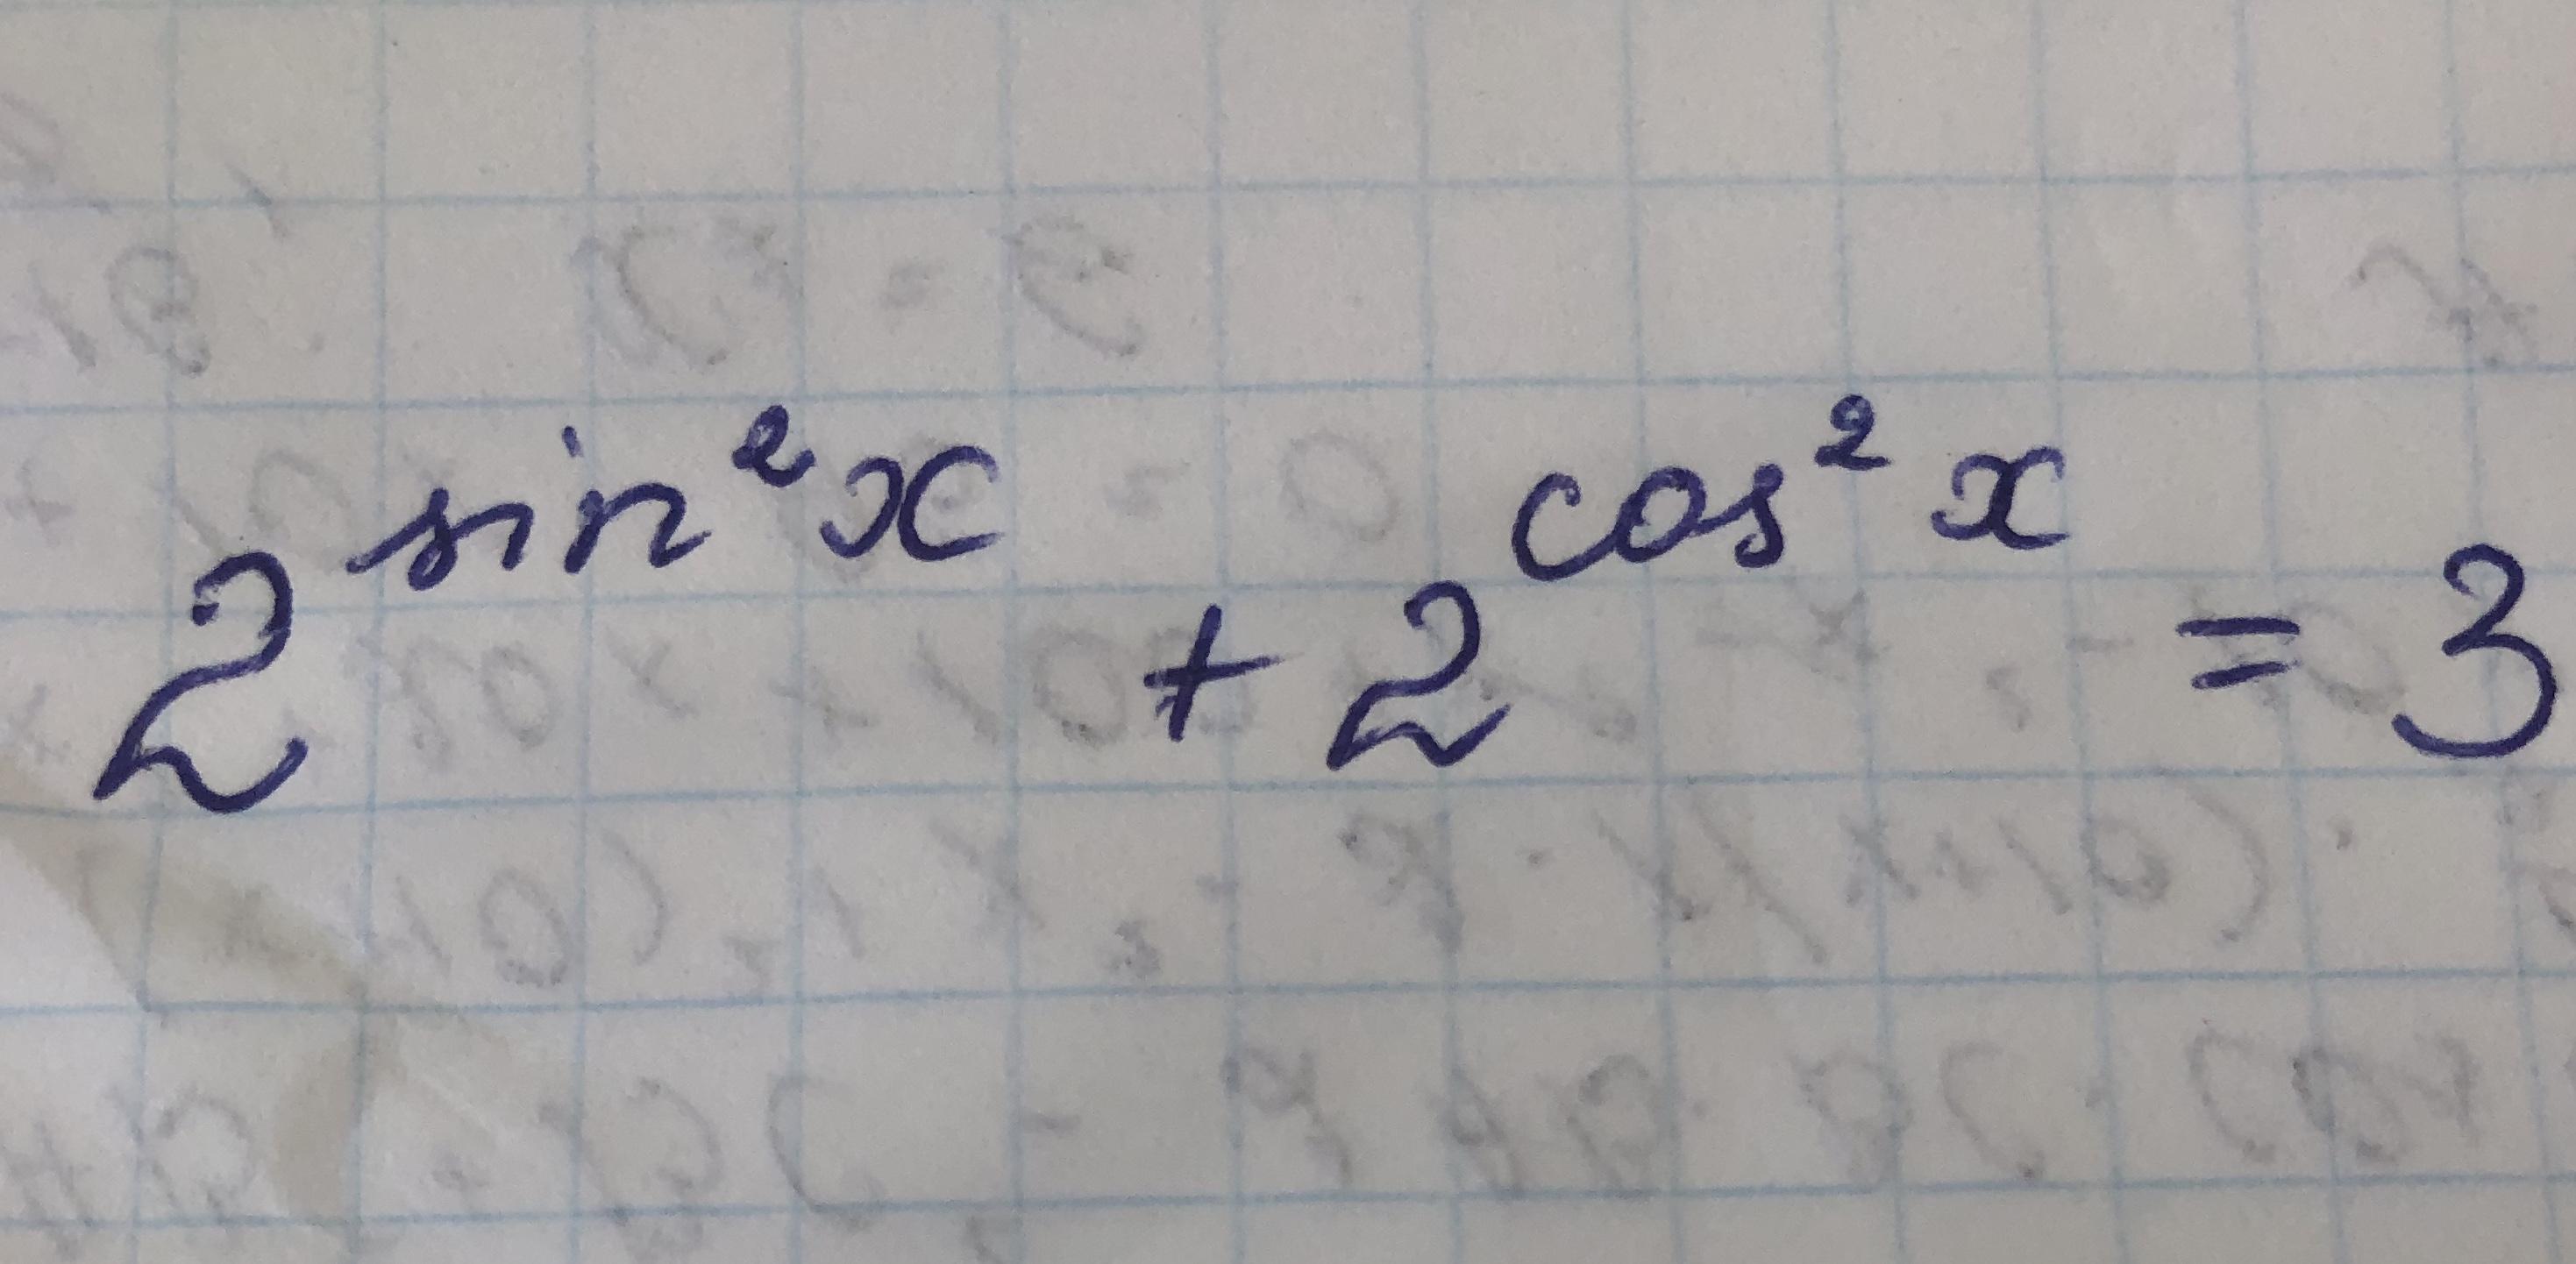 2^{sin^2 x} + 2^{cos^2 x} = 3